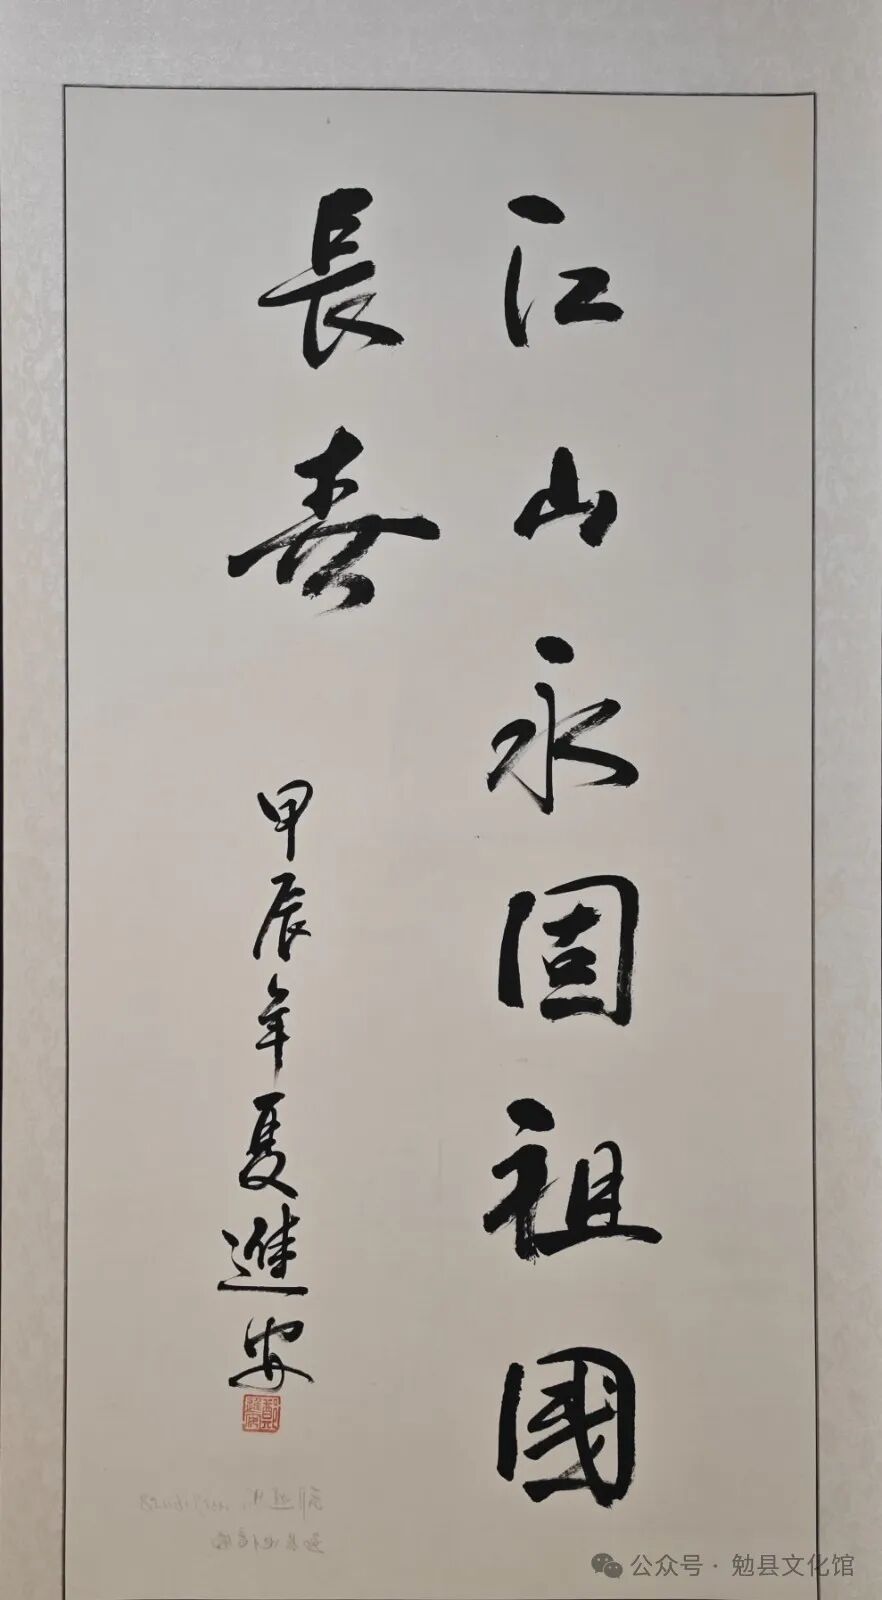 江山永固祖國
長春
甲辰年夏進安
公众号·勉县文化馆